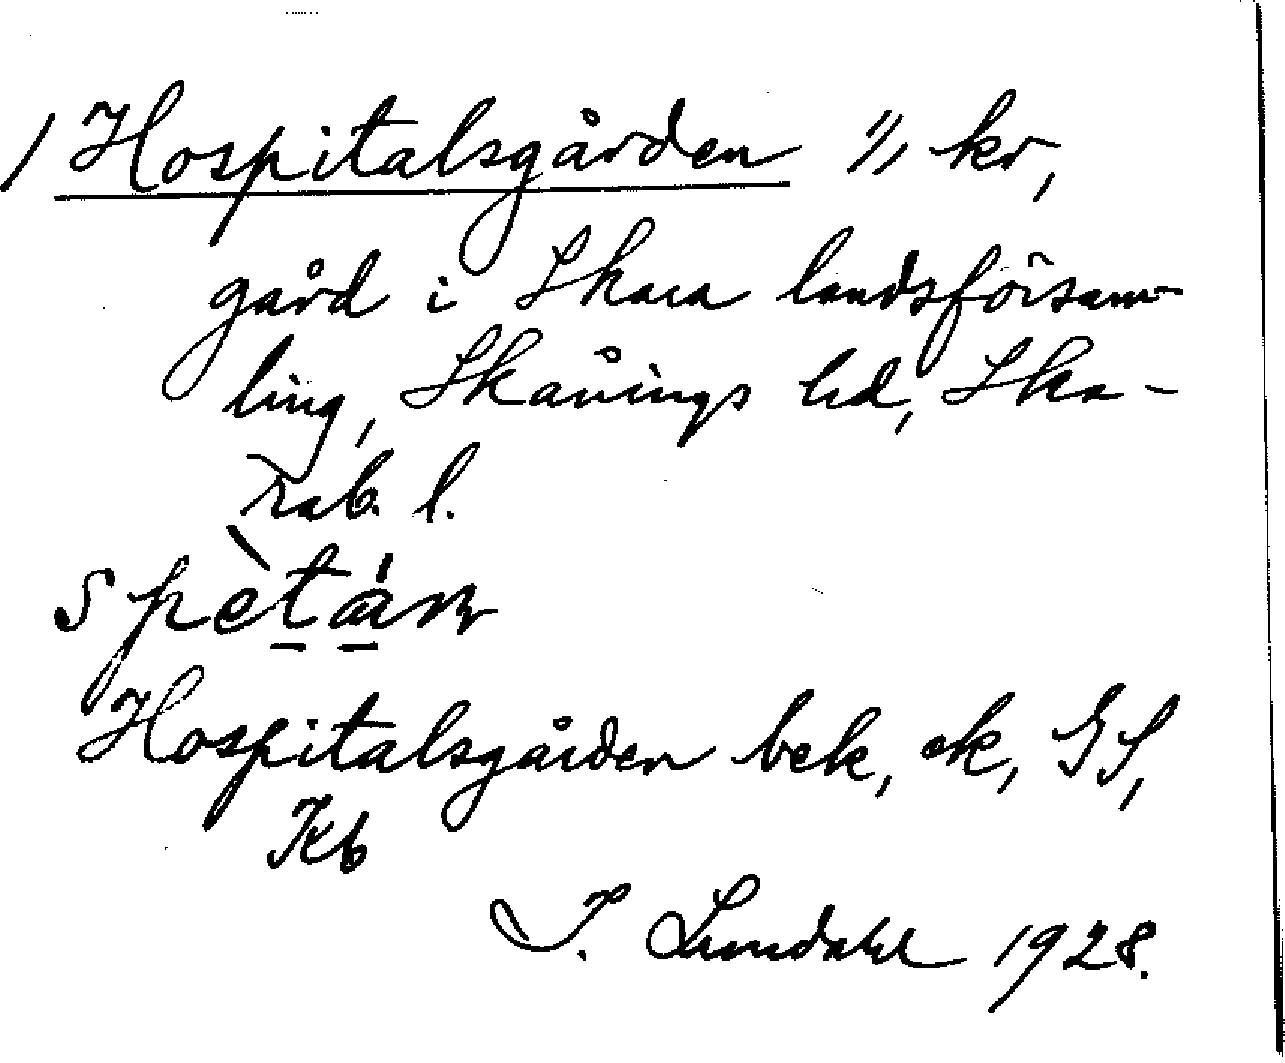 / Hospitalsgården 1/1 kr,
gård i Skara landsförsam-
ling, Skånings hd, Ska-
rab. l.
spètán
Hospitalsgården bek, ek, GS,
Kb
I. Lundahl 1928.